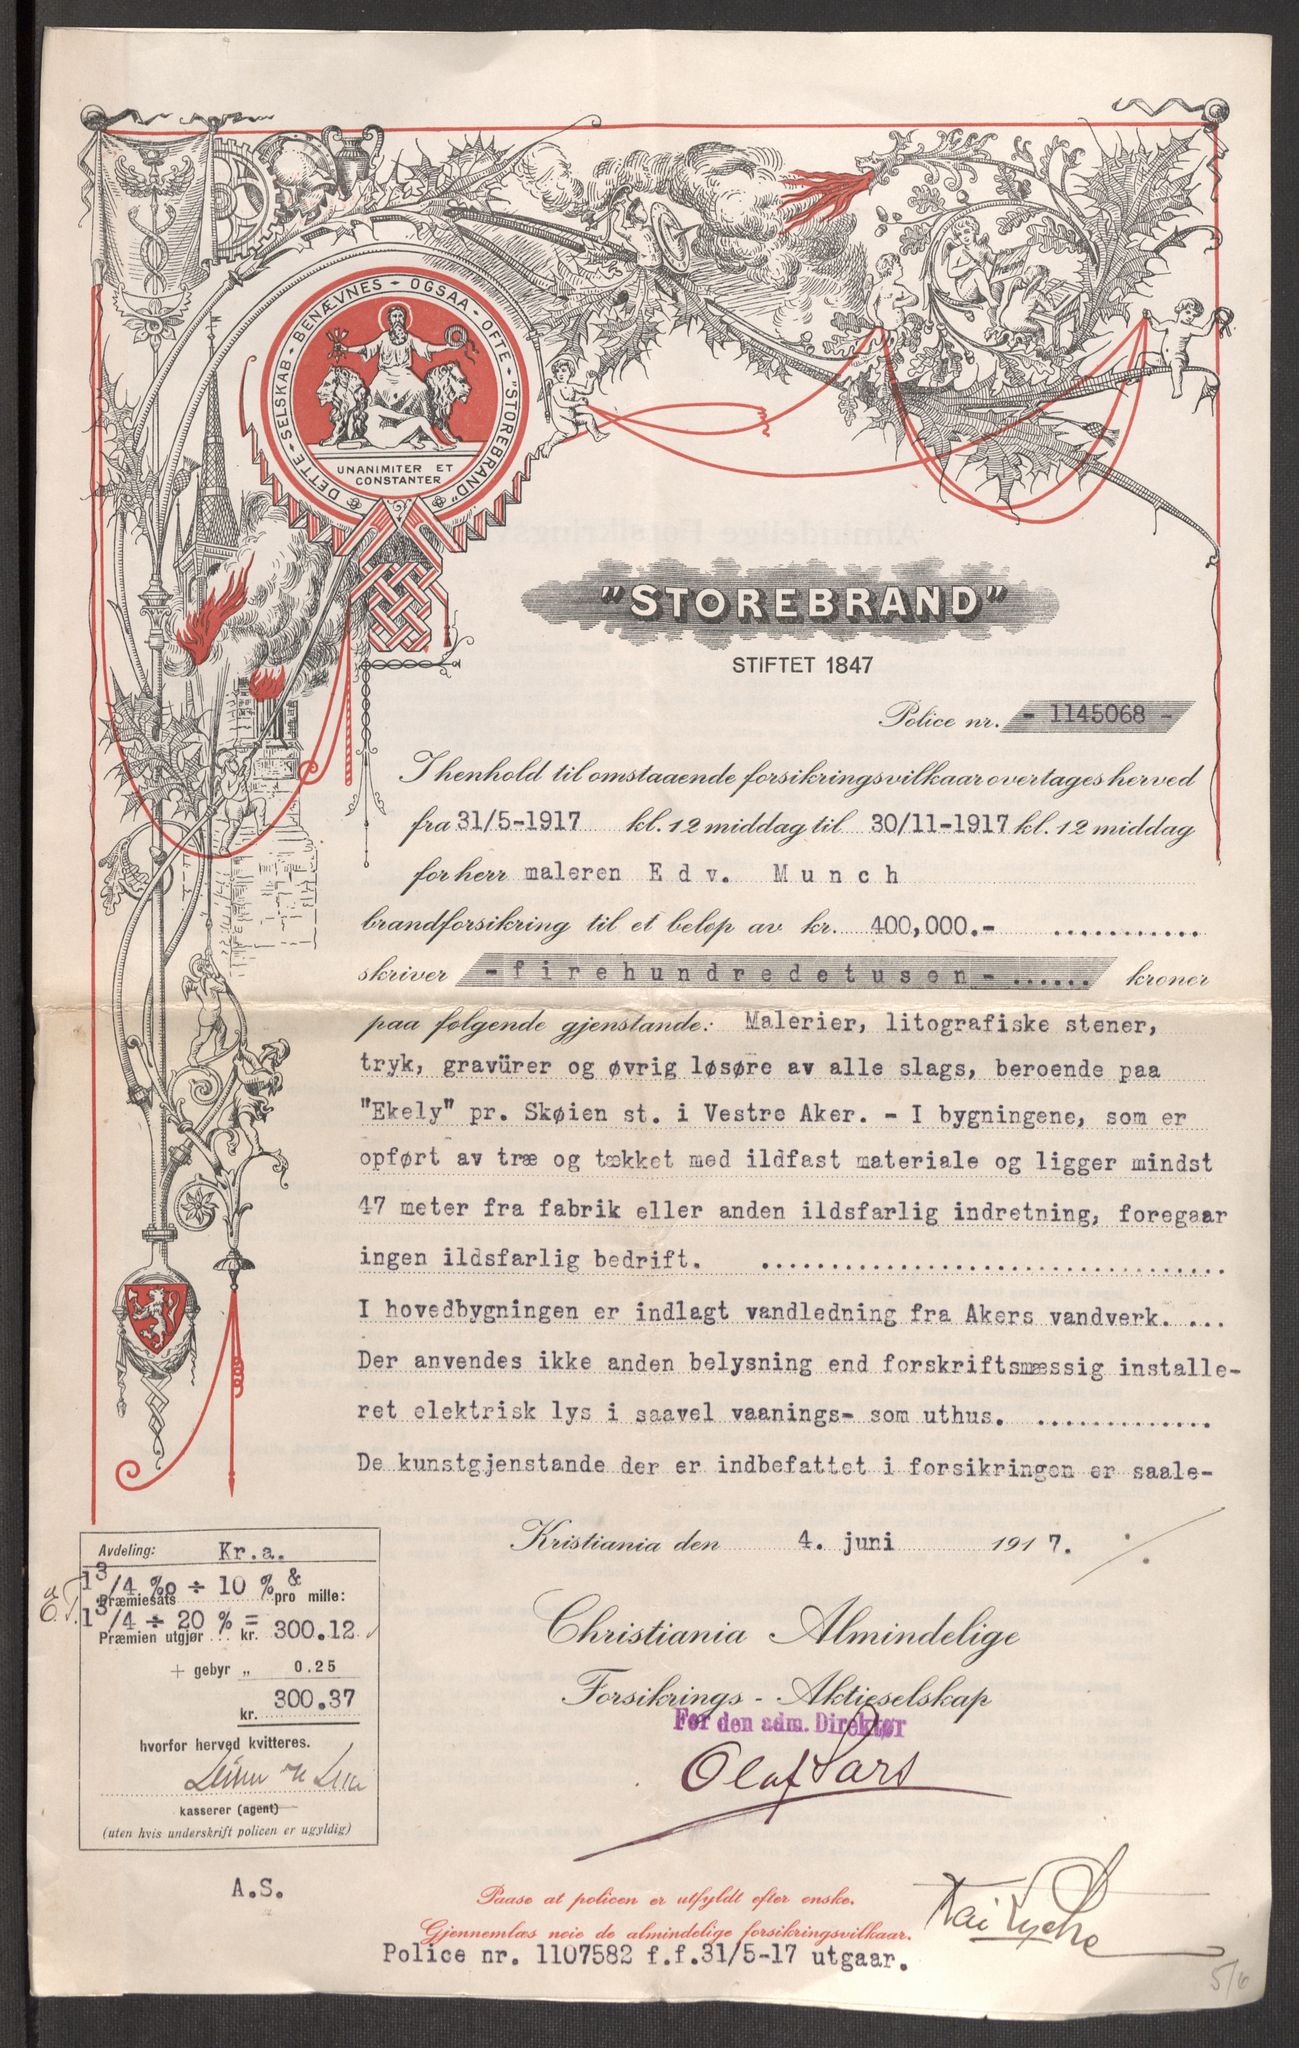 DETTE - SELSKAB - BENÆVNES - OGSAA - OFTE - "STOREBRAND"
UNANIMITER ET
CONSTANTER
"STOREBRAND"
STIFTET 1847
Police nr. - 1145068 -
I henhold til omstaaende forsikringsvilkaar overtages herved
fra 31/5-1917 kl. 12 middag til 30/11-1917 kl. 12 middag
for herr maleren Edv. Munch
brandforsikring til et beløp av kr. 400,000.- ............
skriver -firehundredetusen-...... kroner
paa følgende gjenstande: Malerier, litografiske stener,
tryk, gravürer og øvrig løsøre av alle slags, beroende paa
"Ekely" pr. Skøien st. i Vestre Aker. - I bygningene, som er
opført av træ og tækket med ildfast materiale og ligger mindst
47 meter fra fabrik eller anden ildsfarlig indretning, foregaar
ingen ildsfarlig bedrift. ...................................
I hovedbygningen er indlagt vandledning fra Akers vandverk. ...
Der anvendes ikke anden belysning end forskriftsmæssig installe-
ret elektrisk lys i saavel vaanings- som uthus. .............
De kunstgjenstande der er indbefattet i forsikringen er saale-
Kristiania den 4. juni 1917. ./.
Christiania Almindelige
Forsikrings - Aktieselskap
For den adm. Direktør
Olaf Lars
Avdeling: Kr.a.
1 3/4 %o ÷ 10 % &
Præmiesats pro mille:
1 3/4 ÷ 20 % =
Præmien utgjør ... kr. 300.12
+ gebyr „ 0.25
kr. 300.37
hvorfor herved kvitteres.
kasserer (agent)
(uten hvis underskrift policen er ugyldig)
A.S.
Paase at policen er utfyldt efter ønske.
Gjennemlæs nøie de almindelige forsikringsvilkaar.
Police nr. 1107582 f.f.31/5-17 utgaar.
5/6